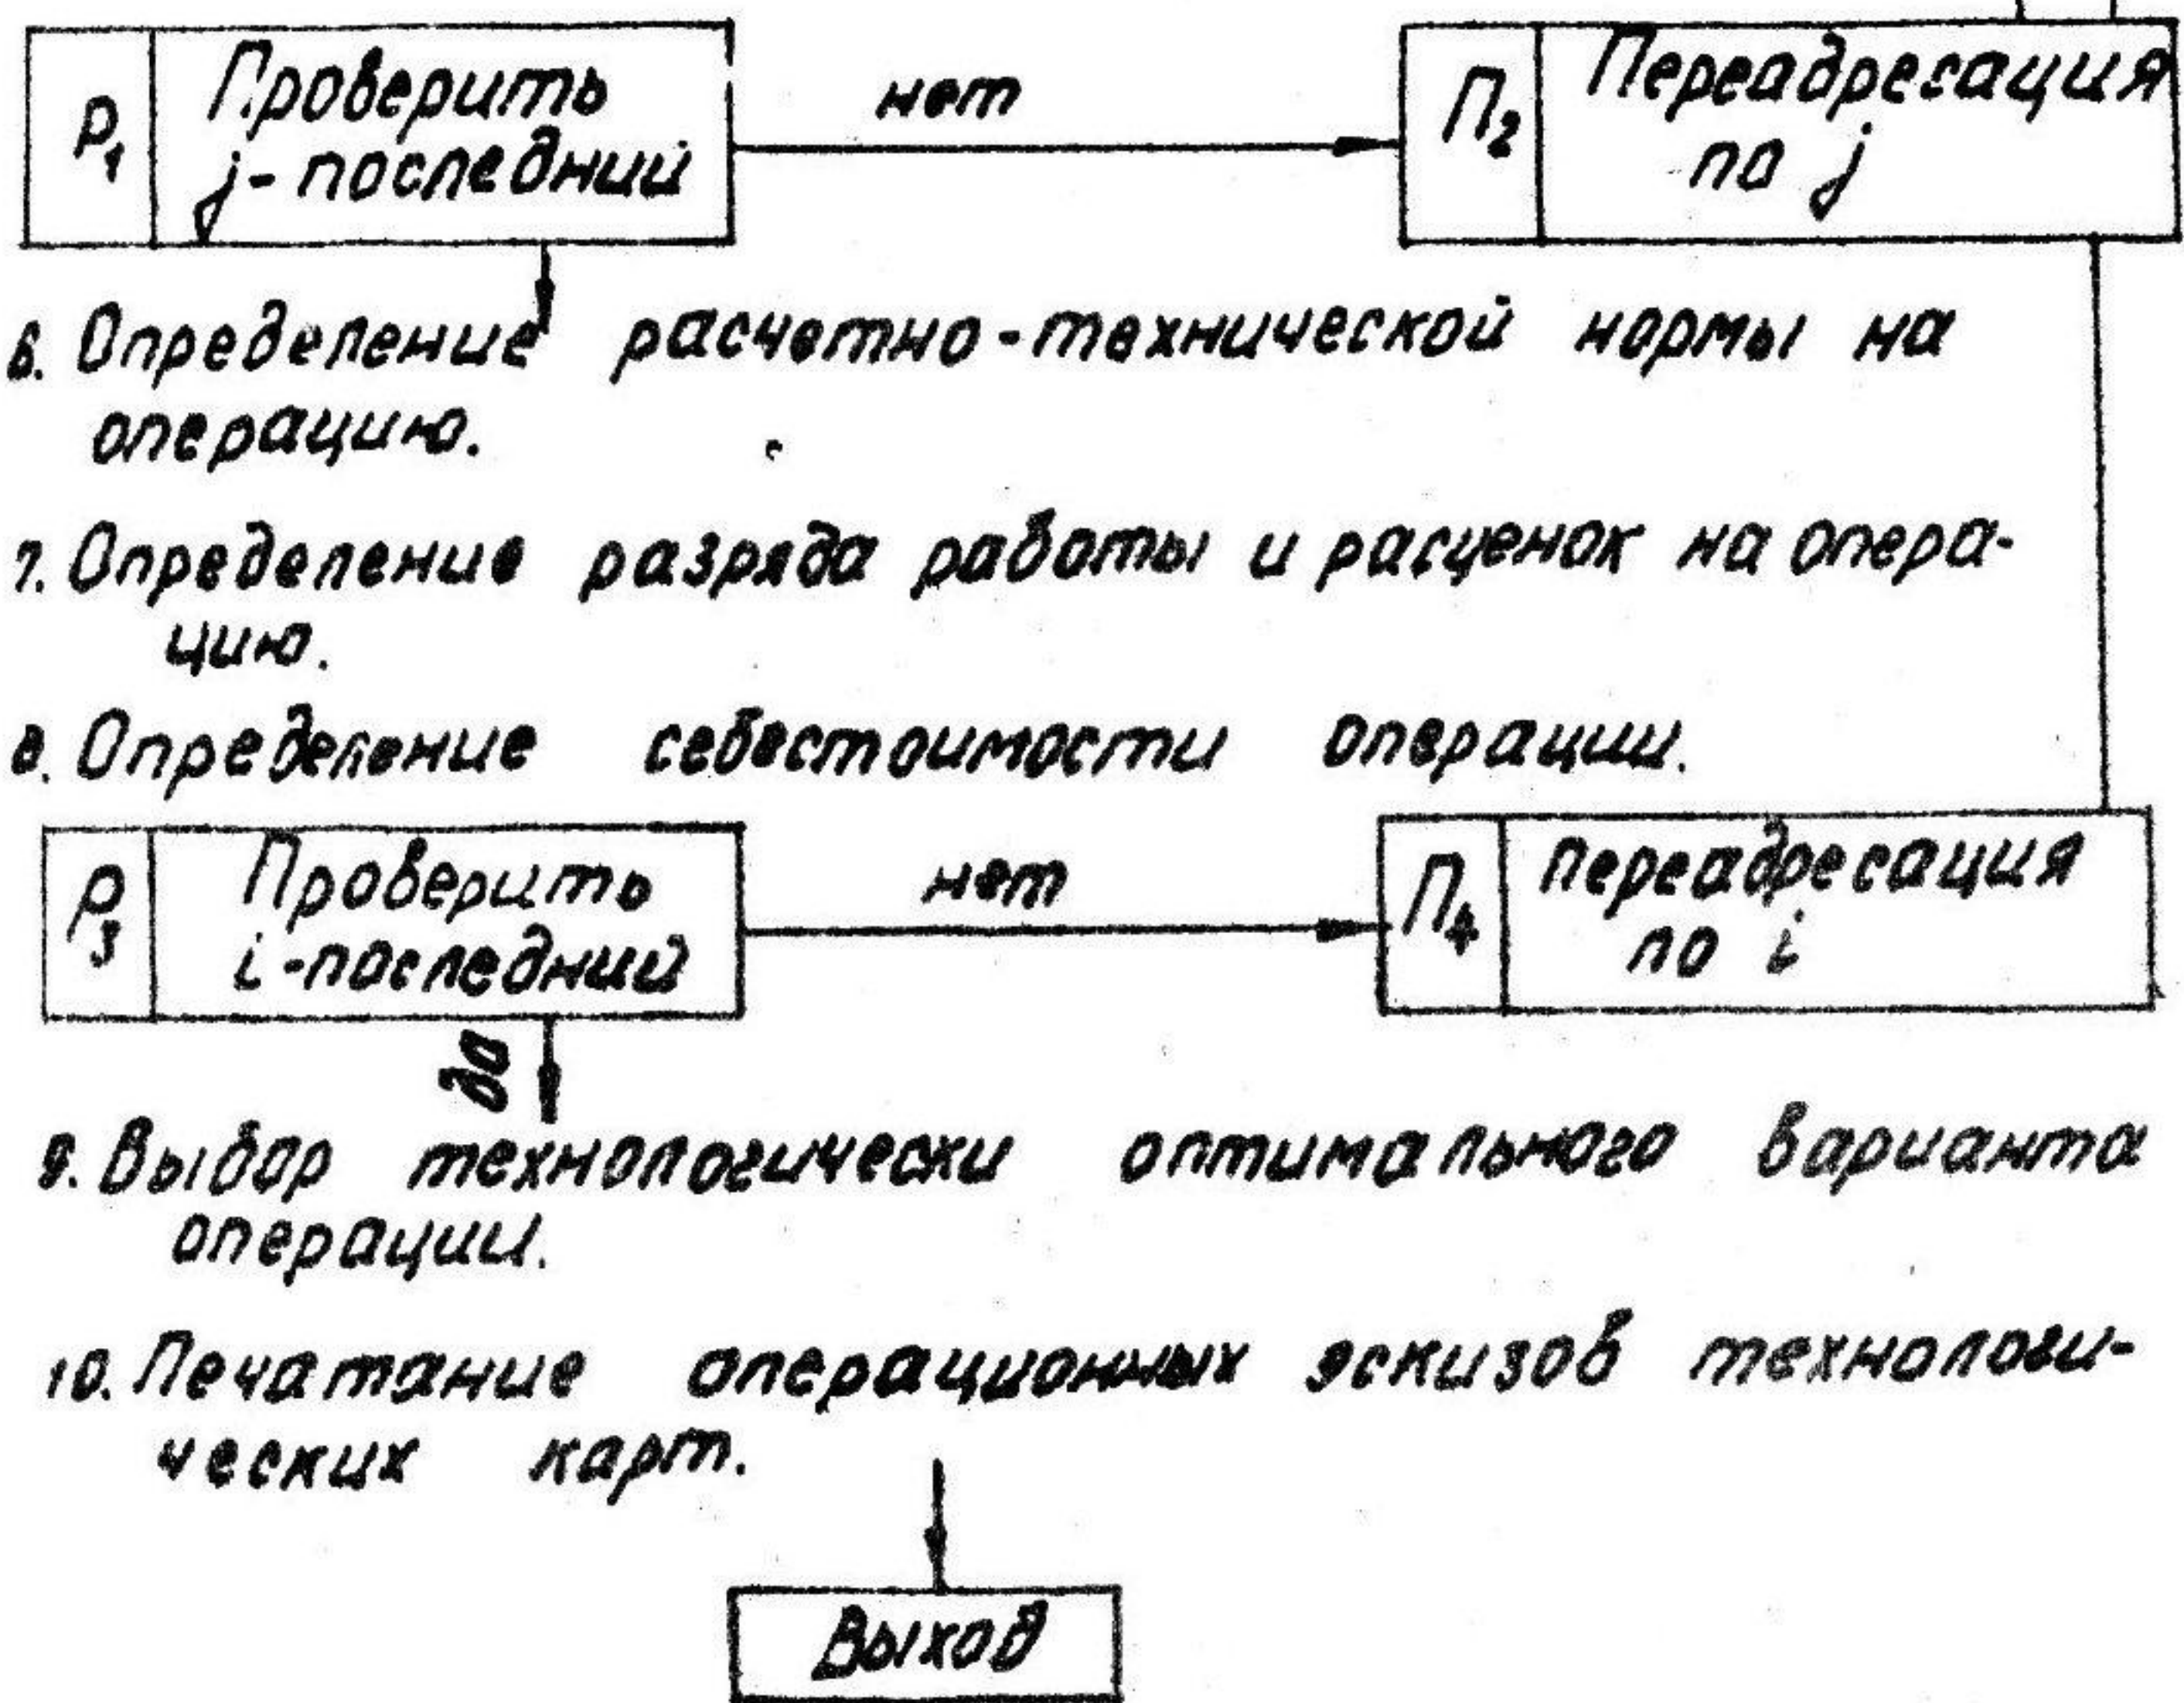 P₁ Проверить
j-последний
нет
П₂ Переадресация
по j
6. Определение расчетно-технической нормы на
операцию.
7. Определение разряда работы и расценок на опера-
цию.
8. Определение себестоимости операции.
P₃ Проверить
i-последний
нет
П₄ переадресация
по i
да
9. Выбор технологически оптимального варианта
операции.
10. Печатание операционных эскизов технологи-
ческих карт.
Выход